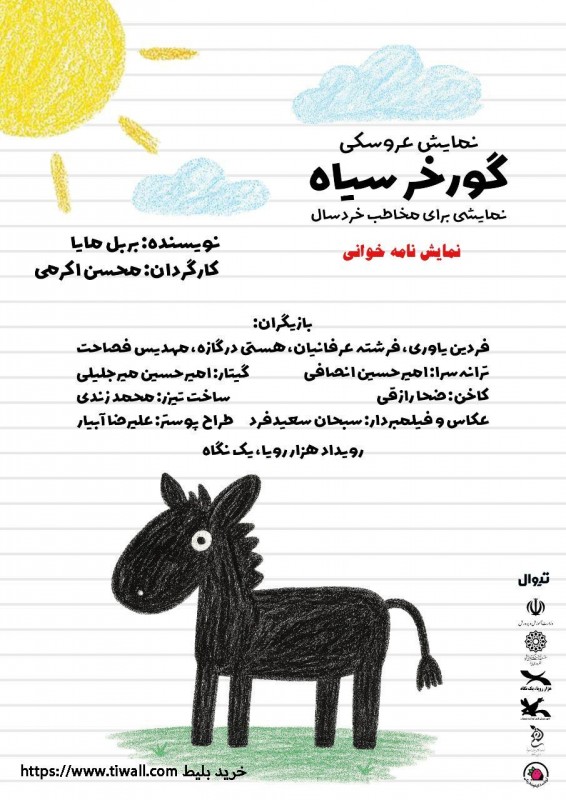 نمایش عروسکی
گورخر سیاه
نمایشی برای مخاطب خردسال
نمایش نامه خوانی
نویسنده: بربل مایا
کارگردان: محسن اکرمی
بازیگران:
فردین یاوری، فرشته عرفانیان، هستی درگازه، مهدیس فصاحت
ترانه سرا: امیرحسین انصافی گیتار: امیرحسین میرجلیلی
کاخن: ضحا رازقی ساخت تیزر: محمد زندی
عکاس و فیلمبردار: سبحان سعیدفرد طراح پوستر: علیرضا آبیار
رویداد هزار رویا، یک نگاه
تیوال
وزارت آموزش و پرورش
هزار رویا، یک نگاه
خرید بلیط https://www.tiwall.com